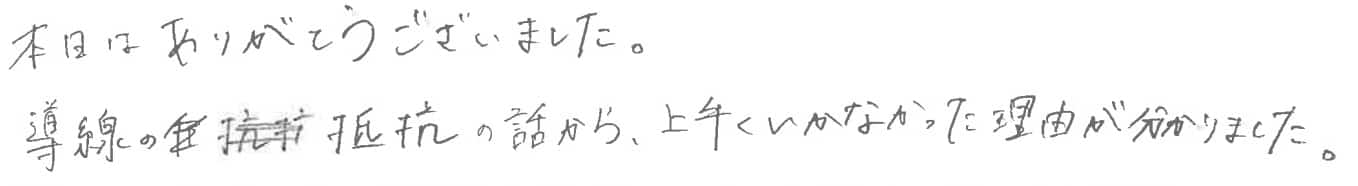 本日はありがとうございました。
導線の抵抗の話から、上手くいかなかった理由が分かりました。